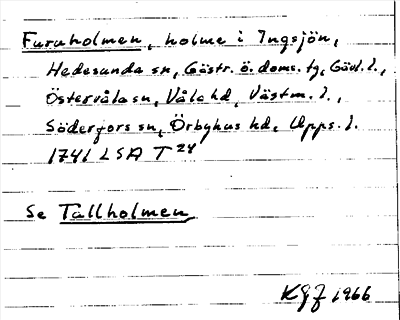 Furuholmen, holme i Ingsjön,
Hedesunda sn, Gästr. ö. doms. tg, Gävl. l.,
Östervåla sn, Våla hd, Västm. l.,
Söderfors sn, Örbyhus hd, Upps. l.
1741 LSA T 24
Se Tallholmen
KGJ 1966